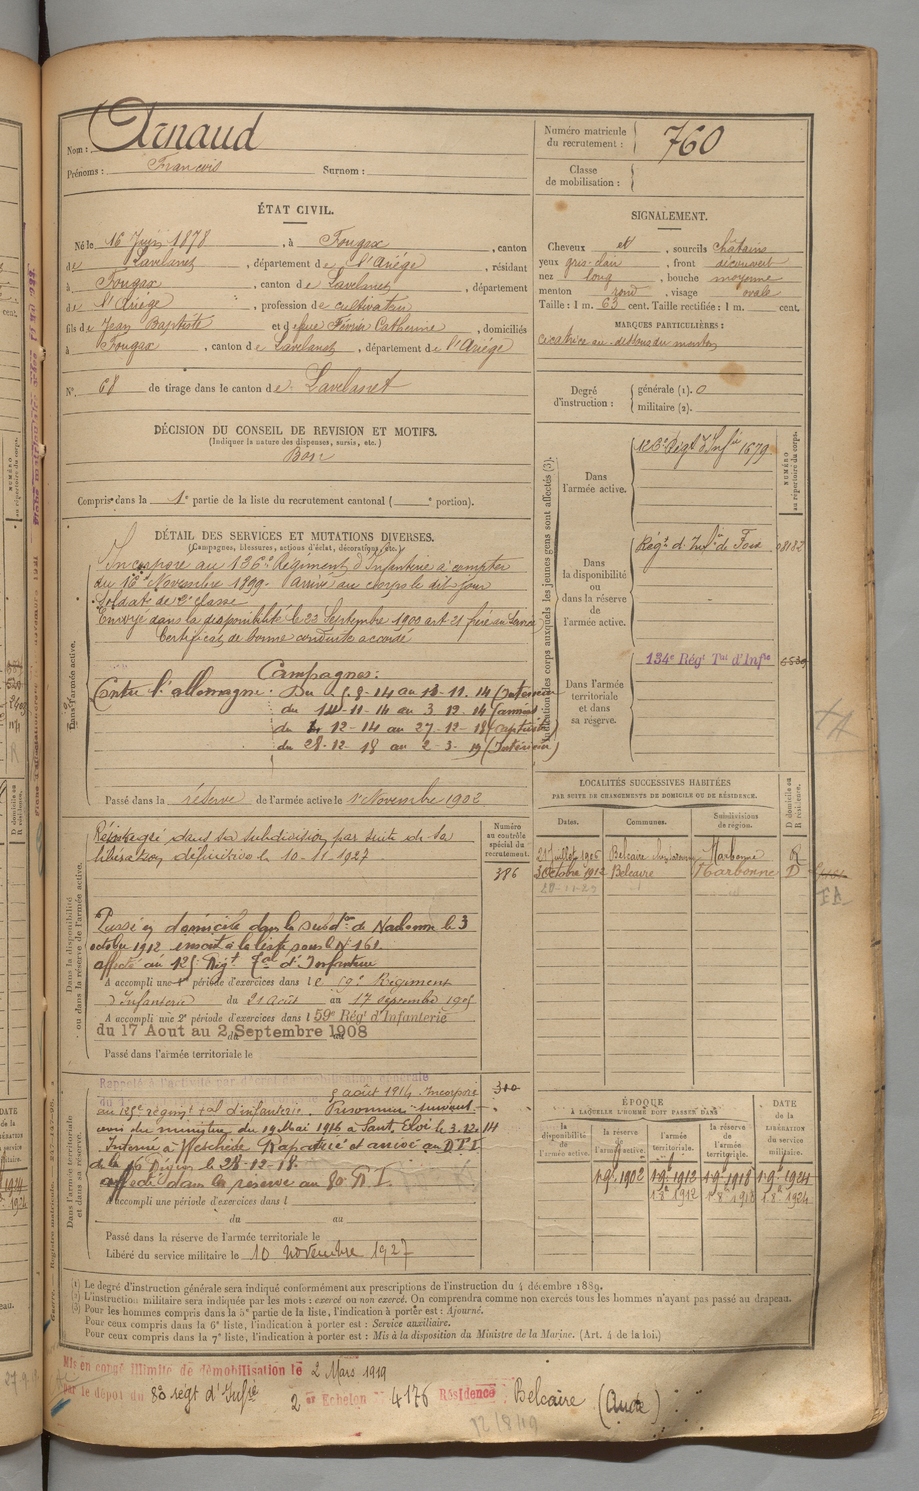 Nom : Arnaud
Prénoms : François Surnom :
ÉTAT CIVIL.
Né le 16 Juin 1878, à Fougax, canton
de Lavelanet, département de l'Ariège, résidant
à Fougax, canton de Lavelanet, département
de l'Ariège, profession de cultivateur
fils de Jean Baptiste et de feue Catherine, domiciliés
à Fougax, canton de Lavelanet, département de l'Ariège
N° 68 de tirage dans le canton de Lavelanet
DÉCISION DU CONSEIL DE REVISION ET MOTIFS.
(Indiquer la nature des dispenses, sursis, etc.)
Bon
Compris dans la 1e partie de la liste du recrutement cantonal ( e portion).
DÉTAIL DES SERVICES ET MUTATIONS DIVERSES.
(Campagnes, blessures, actions d'éclat, décorations, etc.)
Incorporé au 126e Régiment d'Infanterie à compter
du 16 Novembre 1899. Arrivé au corps le dit jour
Soldat de 2e classe
Envoyé dans la disponibilité le 22 Septembre 1900 art 21
Certificat de bonne conduite accordé
Campagnes :
Contre l'allemagne. Du 5-8-14 au 13-11-14 (Intérieur
du 14-11-14 au 3-12-14 (armées
du 4-12-14 au 27-12-18 (captivité
du 28-12-18 au 2-3-19 (Intérieur)
Passé dans la réserve de l'armée active le 1er Novembre 1902
Dans l'armée active.
dans sa subdivision par suite de sa
libération définitive le 10-11-1927
Passé en domicile dans la subdon de Narbonne le 3
octobre 1912 inscrit à la liste sous le N° 161
affecté au 125e Régt Tal d'Infanterie
A accompli une 1e période d'exercices dans le Régiment
d'Infanterie du 21 Août au 17 septembre 1905
A accompli une 2e période d'exercices dans l 59e Régt d'Infanterie
du 17 Aout au 2 Septembre 1908
Passé dans l'armée territoriale le
Dans la disponibilité ou dans la réserve de l'armée active.
Numéro au contrôle spécial du recrutement.
386
Rappelé à l'activité par décret de mobilisation générale
août 1914. Incorporé
au 125e régimt tal d'infanterie. Prisonnier suivant
avis du ministre du 19 Mai 1916 à Sant Eloi le 3.12.14
Interné à Meschede Rapatrié et arrivé au D.T.I
de la 16 Région le 28-12-18.
affecté dans la réserve au 80 R.I.
A accompli une période d'exercices dans l
du au
Passé dans la réserve de l'armée territoriale le
Libéré du service militaire le 10 novembre 1927
Dans l'armée territoriale et dans sa réserve.
310
Numéro matricule du recrutement : 760
Classe de mobilisation :
SIGNALEMENT.
Cheveux et, sourcils châtains
yeux gris-clair, front découvert
nez long, bouche moyenne
menton rond, visage ovale
Taille : 1 m. 63 cent. Taille rectifiée : 1 m. cent.
MARQUES PARTICULIÈRES :
cicatrice au-dessous du menton
Degré d'instruction :
générale (1). 0
militaire (2).
Indication des corps auxquels les jeunes gens sont affectés (3).
NUMÉRO au répertoire du corps.
Dans l'armée active.
126e Régt d'Infie 1679
Dans la disponibilité ou dans la réserve de l'armée active.
Régt d'Infie de Foix 08182
Dans l'armée territoriale et dans sa réserve.
134e Régt Tal d'Infie
LOCALITÉS SUCCESSIVES HABITÉES
PAR SUITE DE CHANGEMENTS DE DOMICILE OU DE RÉSIDENCE.
Dates. Communes. Subdivisions de région. D domicile ou R résidence.
21 juillet 1906 Belcaire Narbonne R
3 octobre 1912 Belcaire Narbonne D
ÉPOQUE
À LAQUELLE L'HOMME DOIT PASSER DANS
DATE de la LIBÉRATION du service militaire.
la disponibilité de l'armée active. la réserve de l'armée active. l'armée territoriale. la réserve de l'armée territoriale.
1 9bre 1902 1 9bre 1912 1 9bre 1918 1 9bre 1924
1 8bre 1912 1 8bre 1918 1 8bre 1924
(1) Le degré d'instruction générale sera indiqué conformément aux prescriptions de l'instruction du 4 décembre 1889.
(2) L'instruction militaire sera indiquée par les mots : exercé ou non exercé. On comprendra comme non exercés tous les hommes n'ayant pas passé au drapeau.
(3) Pour les hommes compris dans la 5e partie de la liste, l'indication à porter est : Ajourné.
Pour ceux compris dans la 6e liste, l'indication à porter est : Service auxiliaire.
Pour ceux compris dans la 7e liste, l'indication à porter est : Mis à la disposition du Ministre de la Marine. (Art. 4 de la loi.)
Mis en congé illimité de démobilisation le 2 Mars 1919
par le dépôt du 80 régt d'Infie 2me Echelon 4176 Résidence Belcaire (Aude)
12/8/19